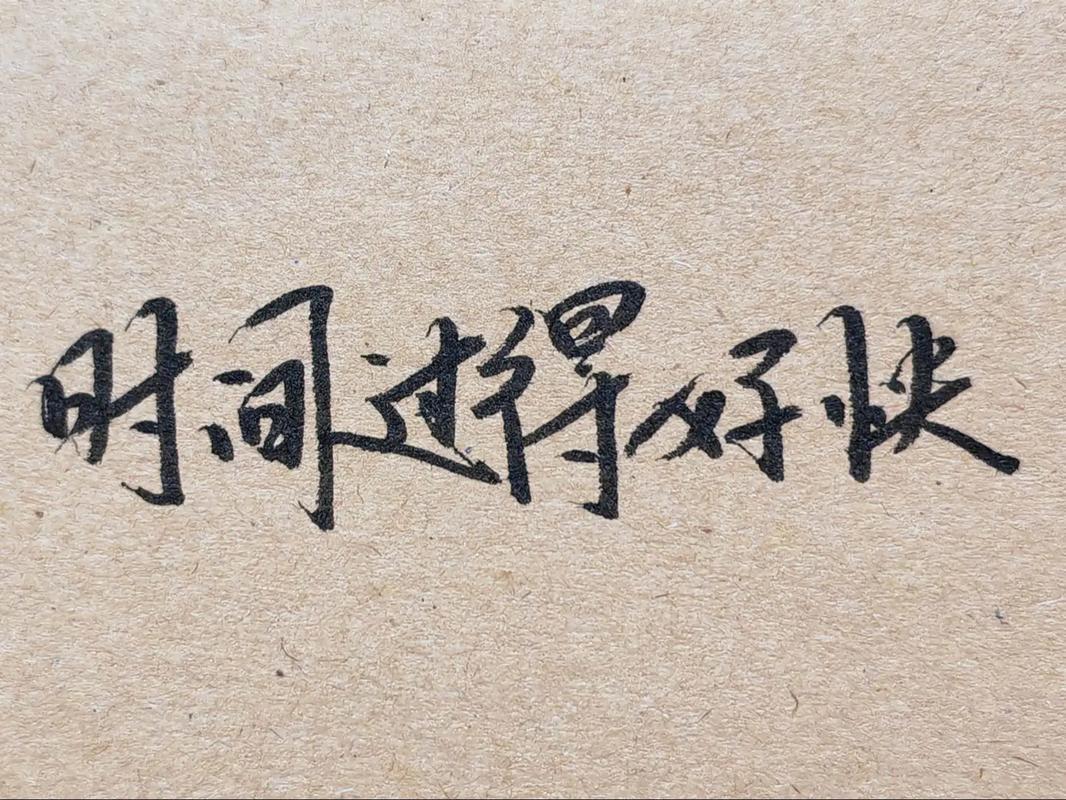 时间过得好快